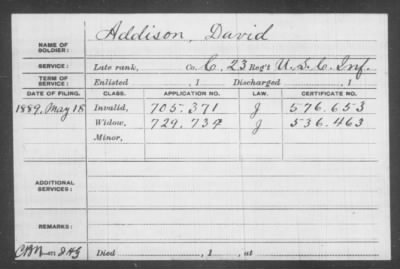 Addison, David
NAME OF SOLDIER:
SERVICE: Late rank, Co. C, 23 Reg't U.S.C. Inf.
TERM OF SERVICE: Enlisted , 1 Discharged , 1
DATE OF FILING. CLASS. APPLICATION NO. LAW. CERTIFICATE NO.
1889, May 18 Invalid, 705.371 J 576.653
Widow, 729.734 J 536.463
Minor,
ADDITIONAL SERVICES:
REMARKS:
Died , 1 , at